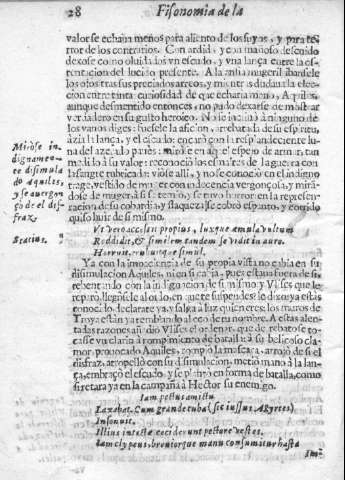 28 Fisonomia de la
valor se echain menos para aliento de los suyos, y para te-
rror de los contrarios. Con ardid, y con mañoso descuido
dexose como olvidados vn escudo, y vna lança entre la os-
tentacion del luzido presente. A la ambi mugeril ibansele
los ojos tras sus preciados arreos, y
eleccion entre tanta curiosidad de que echaria mano, Aquiles
aunque desmentido entonces, no pudo dexarse de mostrar
verdadero en su gusto heroico. No se inclinò à ninguno de
los vanos diges: fuesele la aficion, arrebatada de su espiritu,
à la lança, y el escudo: encarò con la
na del azerado pavès: mirose en
à su valor: reconociò los
la sangre rubricada: viose alli, y no se conociò en el indigno
trage, vestido de muger con indecencia vergonçosa, y mira-
dose de muger à si se temiò, y se tuvo horror: en la represen-
cion de su cobardia, y flaqueza se cobrò espanto, y corrido
quiso huir de si mismo.
Mirose in-
dignamen-
te disimula
do Aquiles,
y se avergon
gò de el dis-
fraz.
Vt vero accessit propius, luxque æmula vultum
Reddidit, & similem tandem se vidit in auro.
Horruit, erubuitque simul.
Statius.
Ya con la impaciencia de su propia vista no cabia en su
disimulacion Aquiles, ni en si cabia, pues estaua fuera de si,
rebentando con la indignacion de si mismo, y Vlises que le
reparò, llegòsele al oido, en que te suspendes? le dixo ya estàs
conocido, declarate ya, salga a luz quien eres: los muros de
Troya estàn ya temblando al eco de tu nombre. A estas alen-
tadas razones añadio Vlises el ordenar, que de rebato se to-
casse vn clarin à rompimiento de batalla: à su belicoso cla-
mor prouocado Aquiles, rompiò la mascara, arrojò de si el
disfraz, atropellò con su disimulacion, metiò mano à la lan-
ça, embraçò el escudo, y se plantò en forma de batalla, como
si retara ya en la campaña à Hector su enemigo.
Iam pectus amictu
Laxabat. Cum grande tuba (sic iussus Agyrtes)
Insonuit.
Illius intactæ cecider unt pectore vestes.
Iam clypeus, breviorque manu consumitur hasta